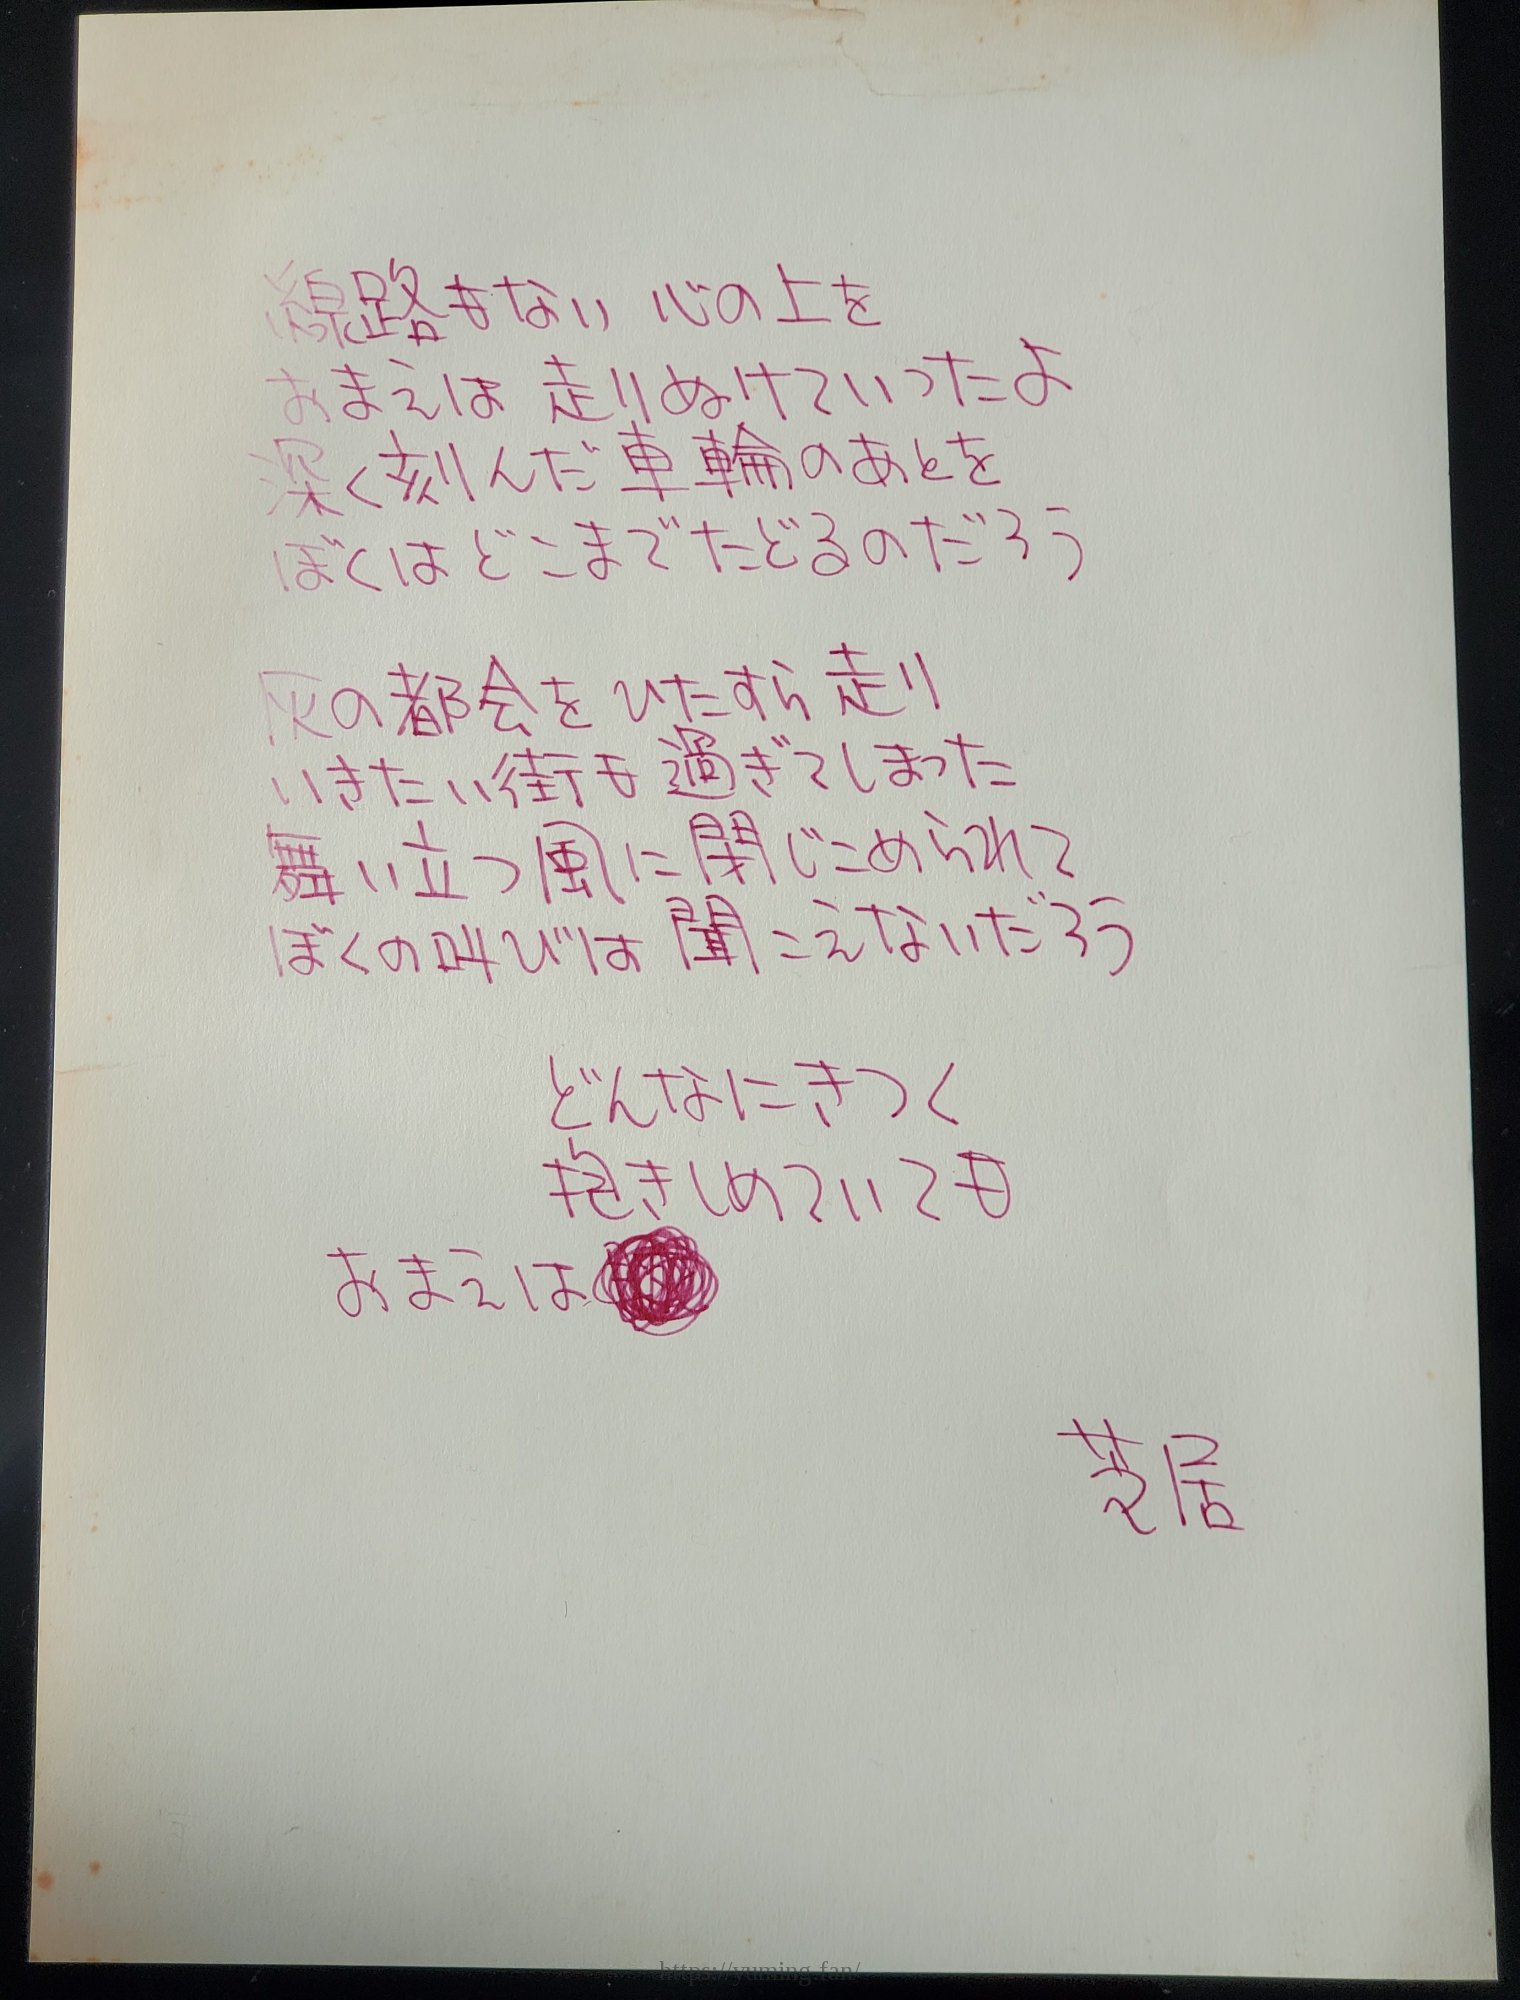 線路もない 心の上を
おまえは 走りぬけていったよ
深く刻んだ 車輪のあとを
ぼくは どこまで たどるのだろう
灰の都会を ひたすら 走り
いきたい街も 過ぎてしまった
舞い立つ 風に 閉じこめられて
ぼくの叫びは 聞こえないだろう
どんなに きつく
抱きしめていても
おまえは
芝居
https://yuming.fan/